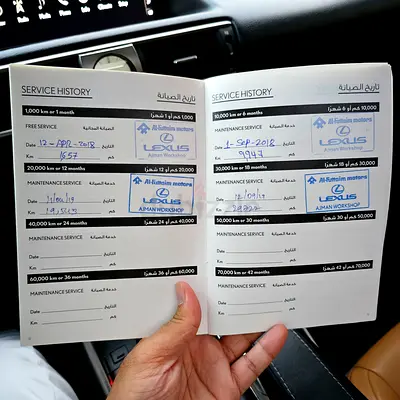 SERVICE HISTORY
تاريخ الصيانة
1,000 km or 1 month
1,000 كم أو 1 شهرًا
FREE SERVICE
الصيانة المجانية
Al-Futtaim motors
LEXUS
Ajman Workshop
Date 12-APR-2018 التاريخ
Km 1657 كم
20,000 km or 12 months
20,000 كم أو 12 شهرًا
MAINTENANCE SERVICE
خدمة الصيانة
Al-Futtaim motors
LEXUS
AJMAN WORKSHOP
Date التاريخ
Km كم
40,000 km or 24 months
40,000 كم أو 24 شهرًا
MAINTENANCE SERVICE
خدمة الصيانة
Date التاريخ
Km كم
60,000 km or 36 months
60,000 كم أو 36 شهرًا
MAINTENANCE SERVICE
خدمة الصيانة
Date التاريخ
Km كم
SERVICE HISTORY
تاريخ الصيانة
10,000 km or 6 months
10,000 كم أو 6 شهرًا
MAINTENANCE SERVICE
خدمة الصيانة
Al-Futtaim motors
LEXUS
Ajman Workshop
Date 1-SEP-2018 التاريخ
Km 9947 كم
30,000 km or 18 months
30,000 كم أو 18 شهرًا
MAINTENANCE SERVICE
خدمة الصيانة
Al-Futtaim motors
LEXUS
AJMAN WORKSHOP
Date التاريخ
Km كم
50,000 km or 30 months
50,000 كم أو 30 شهرًا
MAINTENANCE SERVICE
خدمة الصيانة
Date التاريخ
Km كم
70,000 km or 42 months
70,000 كم أو 42 شهرًا
MAINTENANCE SERVICE
خدمة الصيانة
Date التاريخ
Km كم